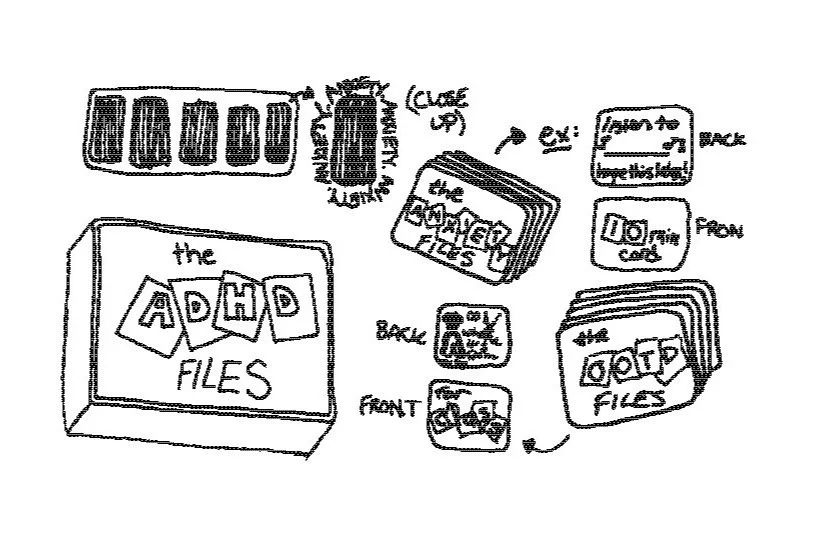 (CLOSE
UP)
ANXIETY. ANXIETY. ANXIETY. ANXIETY.
ex:
listen to
BACK
10 min
card
FRON
the
ANXIETY
FILES
the
ADHD
FILES
BACK
FRONT
for
CLASS
the
OOTD
FILES